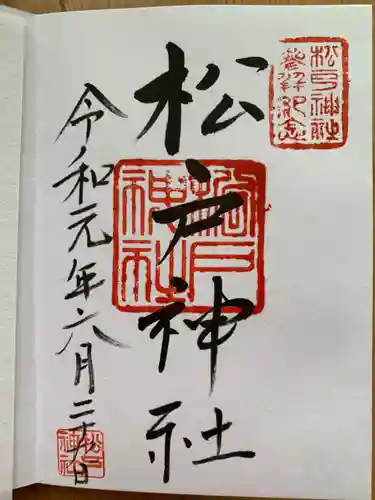 松戸神社
參拜記念
松戸神社
松戸神社
令和元年六月二十六日
松戸神社